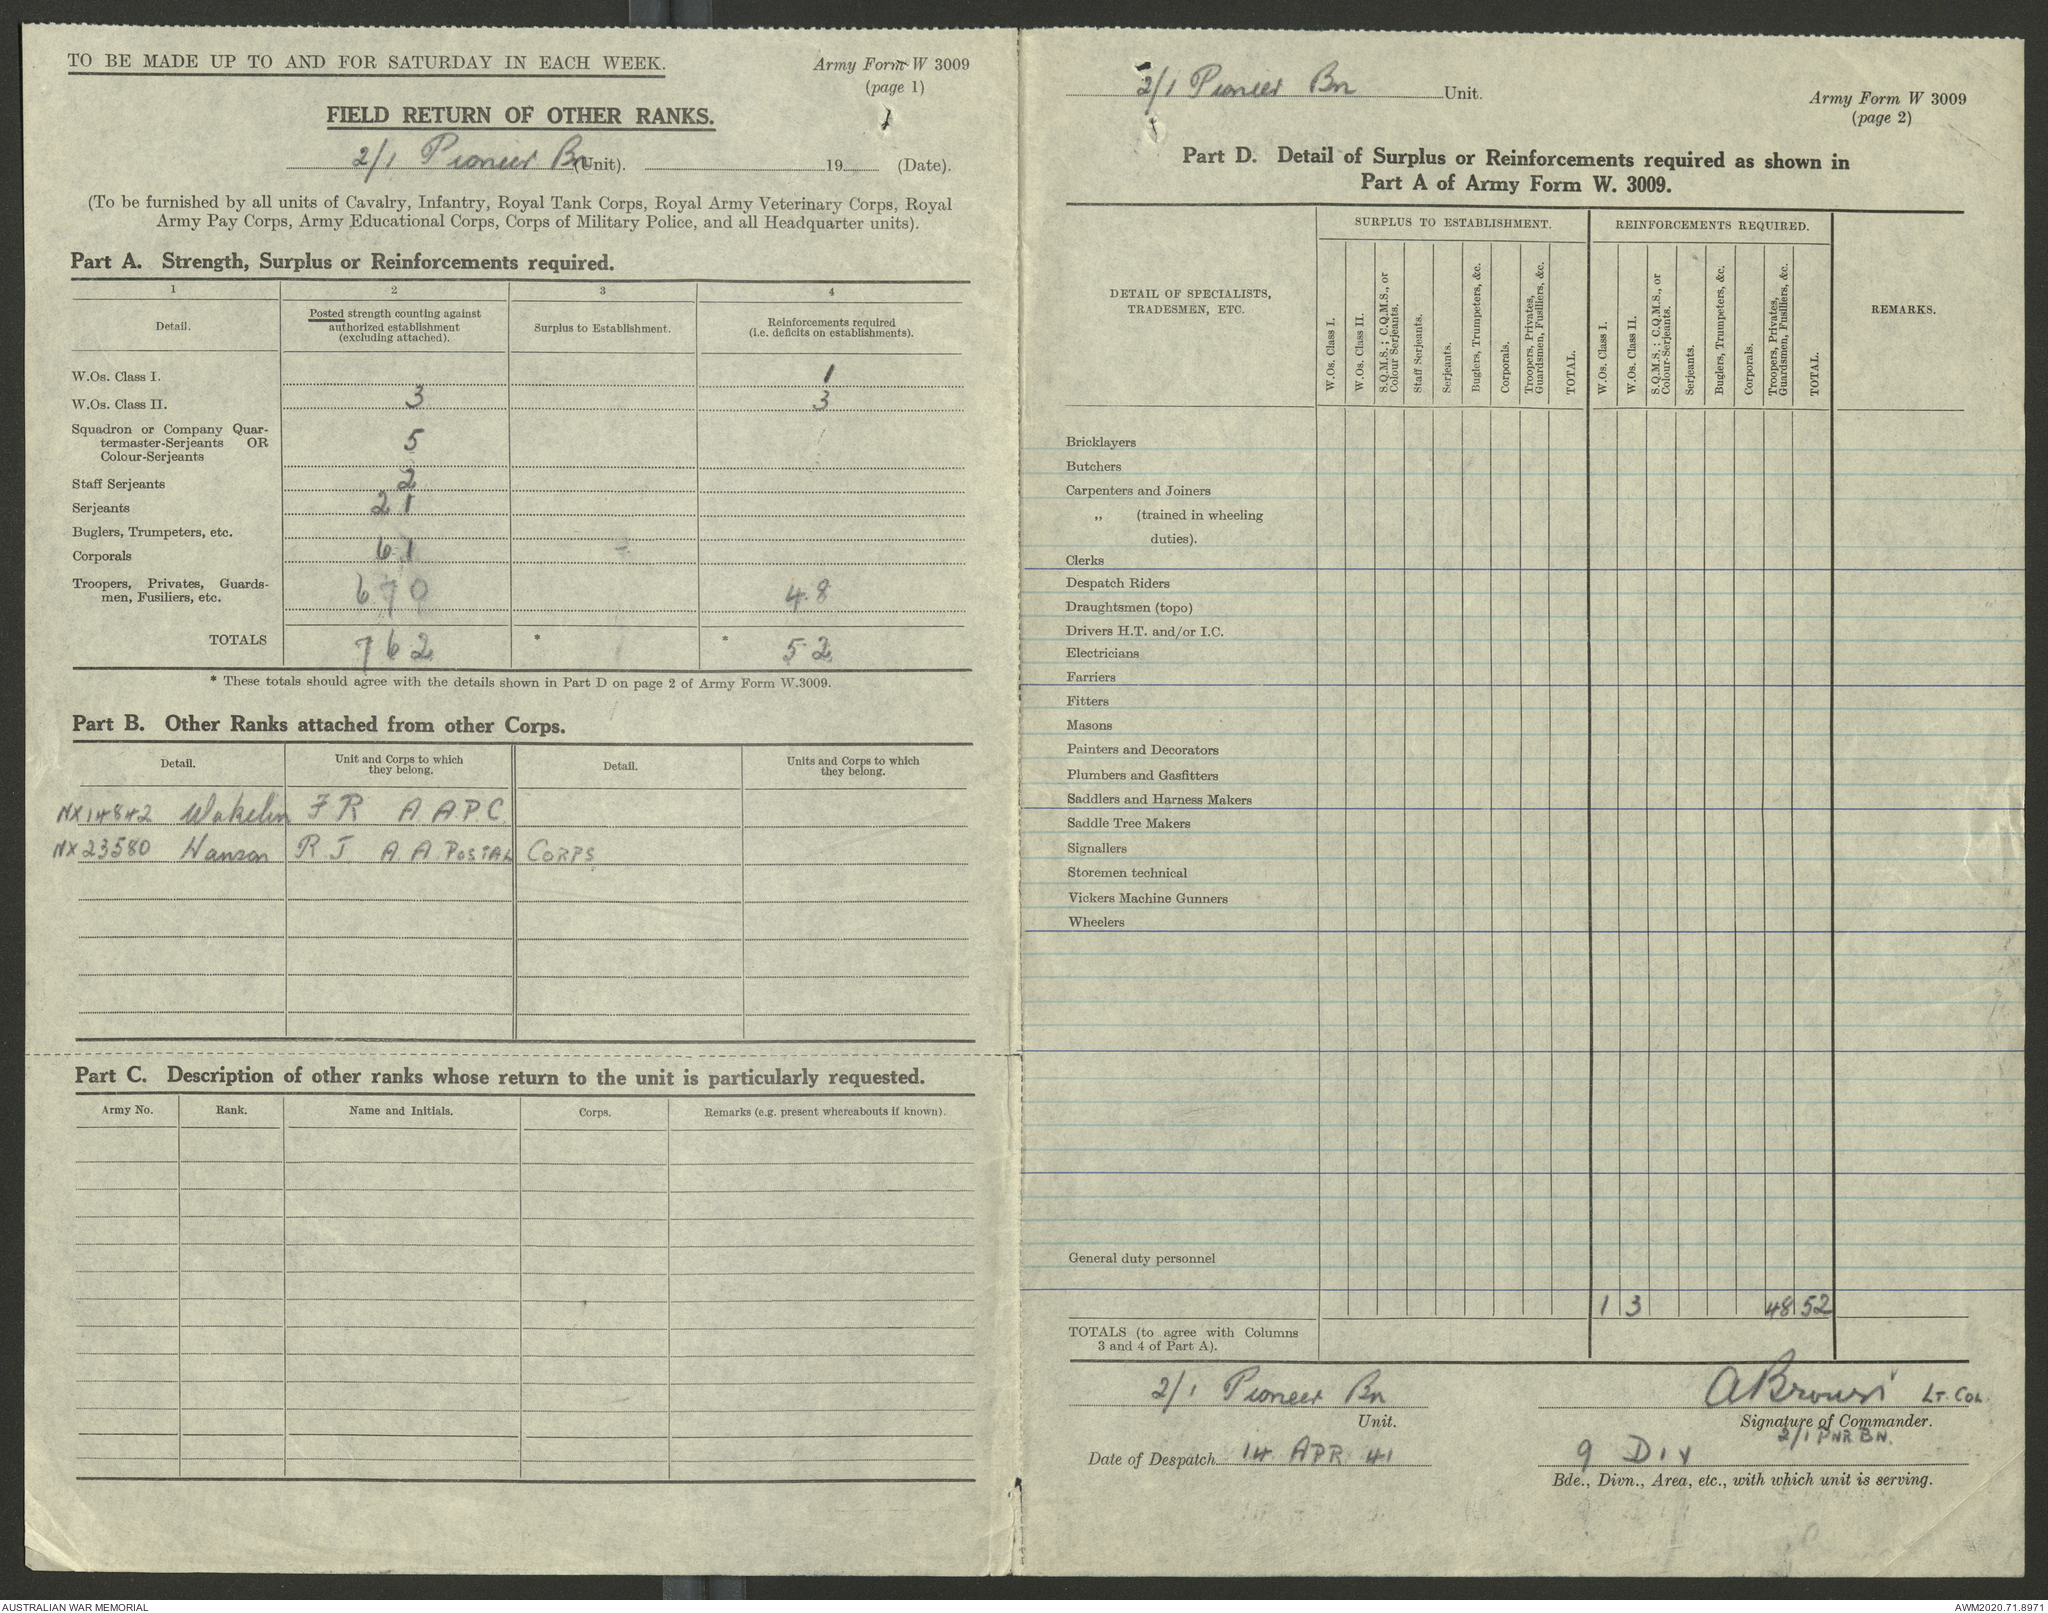 TO BE MADE UP TO AND FOR SATURDAY IN EACH WEEK.
Army Form W 3009
(page 1)
FIELD RETURN OF OTHER RANKS.
2/1 Pioneer Bn (Unit). 19 (Date).
(To be furnished by all units of Cavalry, Infantry, Royal Tank Corps, Royal Army Veterinary Corps, Royal
Army Pay Corps, Army Educational Corps, Corps of Military Police, and all Headquarter units).
Part A. Strength, Surplus or Reinforcements required.
1 2 3 4
Detail.
Posted strength counting against
authorized establishment
(excluding attached).
Surplus to Establishment.
Reinforcements required
(i.e. deficits on establishments).
W.Os. Class I. 1
W.Os. Class II. 3 3
Squadron or Company Quar-
termaster-Serjeants OR
Colour-Serjeants 5
Staff Serjeants 2
Serjeants 21
Buglers, Trumpeters, etc.
Corporals 61
Troopers, Privates, Guards-
men, Fusiliers, etc. 670 48
TOTALS 762 * * 52
* These totals should agree with the details shown in Part D on page 2 of Army Form W.3009.
Part B. Other Ranks attached from other Corps.
Detail.
Unit and Corps to which
they belong.
Detail.
Units and Corps to which
they belong.
NX14842 Wakelin F R A.A.P.C.
NX23580 Hanson R J A A POSTAL CORPS
Part C. Description of other ranks whose return to the unit is particularly requested.
Army No. Rank. Name and Initials. Corps. Remarks (e.g. present whereabouts if known).
2/1 Pioneer Bn Unit.
Army Form W 3009
(page 2)
Part D. Detail of Surplus or Reinforcements required as shown in
Part A of Army Form W. 3009.
DETAIL OF SPECIALISTS,
TRADESMEN, ETC.
SURPLUS TO ESTABLISHMENT.
W.Os. Class I.
W.Os. Class II.
S.Q.M.S.; C.Q.M.S., or
Colour Serjeants.
Staff Serjeants.
Serjeants.
Buglers, Trumpeters, &c.
Corporals.
Troopers, Privates,
Guardsmen, Fusiliers, &c.
TOTAL.
REINFORCEMENTS REQUIRED.
W.Os. Class I.
W.Os. Class II.
S.Q.M.S.; C.Q.M.S., or
Colour-Serjeants.
Serjeants.
Buglers, Trumpeters, &c.
Corporals.
Troopers, Privates,
Guardsmen, Fusiliers, &c.
TOTAL.
REMARKS.
Bricklayers
Butchers
Carpenters and Joiners
„ (trained in wheeling
duties).
Clerks
Despatch Riders
Draughtsmen (topo)
Drivers H.T. and/or I.C.
Electricians
Farriers
Fitters
Masons
Painters and Decorators
Plumbers and Gasfitters
Saddlers and Harness Makers
Saddle Tree Makers
Signallers
Storemen technical
Vickers Machine Gunners
Wheelers
General duty personnel
1 3 48 52
TOTALS (to agree with Columns
3 and 4 of Part A).
2/1 Pioneer Bn
Unit.
A Brown Lt. Col.
Signature of Commander.
2/1 PNR. BN.
Date of Despatch 14 APR 41
9 Div
Bde., Divn., Area, etc., with which unit is serving.
AUSTRALIAN WAR MEMORIAL
AWM2020.71.8971